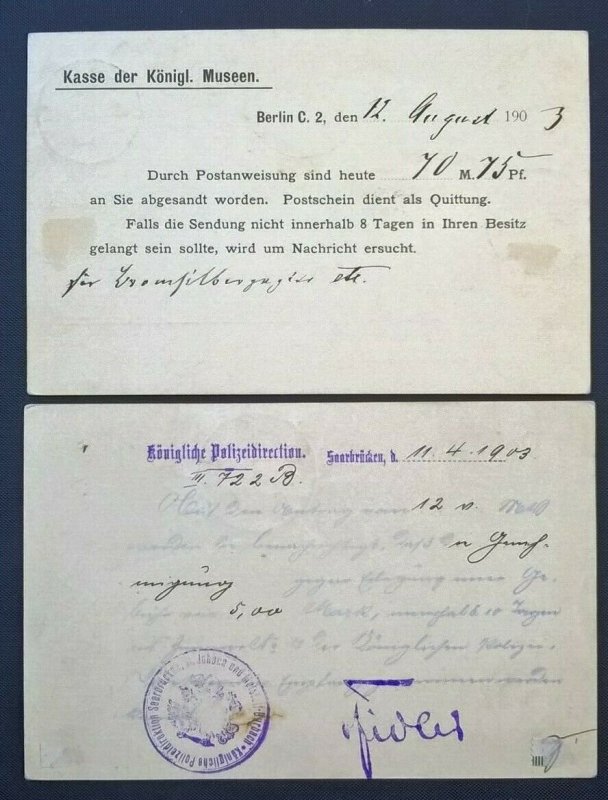 Kasse der Königl. Museen.
Berlin C. 2, den 12. August 1903
Durch Postanweisung sind heute 70 M. 75 Pf.
an Sie abgesandt worden. Postschein dient als Quittung.
Falls die Sendung nicht innerhalb 8 Tagen in Ihren Besitz
gelangt sein sollte, wird um Nachricht ersucht.
für Bromsilberpapier etc.
Königliche Polizeidirection. Saarbrücken, d. 11. 4. 1903
III. 722 B.
Auf den Antrag vom 12 v. Mts
werden Sie benachrichtigt, daß d n Geneh-
migung gegen Erlegung einer Ge-
bühr von 5,00 Mark, innerhalb 10 Tagen
der Königlichen Polizei-
Empfang genommen werden